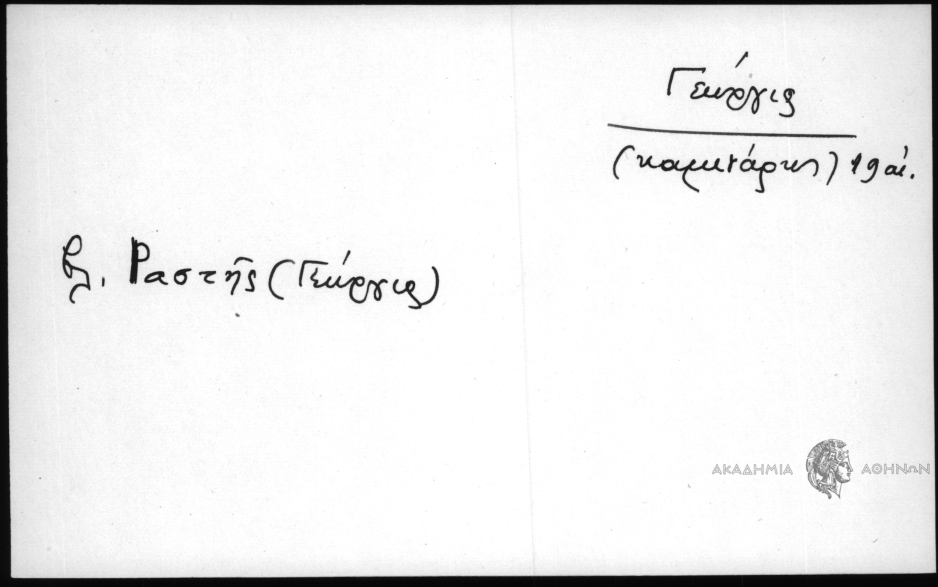 Γεώργις
(καμινάρης) 19 αἰ.
βλ. Ραστῆς (Γεώργις)
ΑΚΑΔΗΜΙΑ ΑΘΗΝΩΝ